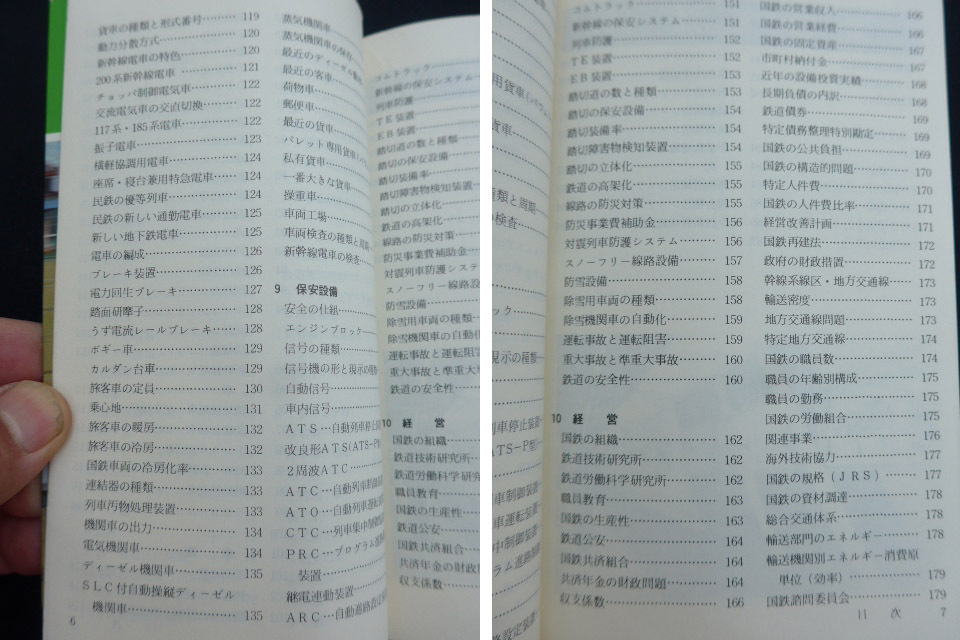 貨車の種類と形式番号……… 119
動力分散方式……………… 120
新幹線電車の特色………… 120
200系新幹線電車 ………… 121
チョッパ制御電気車……… 122
交流電気車の交直切換…… 122
117系・185系電車………… 122
振子電車…………………… 123
横軽協調用電車…………… 124
座席・寝台兼用特急電車… 124
民鉄の優等列車…………… 124
民鉄の新しい通勤電車…… 125
新しい地下鉄電車………… 125
電車の編成………………… 126
ブレーキ装置……………… 126
電力回生ブレーキ………… 127
踏面研摩子………………… 128
うず電流レールブレーキ… 128
ボギー車…………………… 129
カルダン台車……………… 129
旅客車の定員……………… 130
乗心地……………………… 131
旅客車の暖房……………… 132
旅客車の冷房……………… 132
国鉄車両の冷房化率……… 133
連結器の種類……………… 133
列車汚物処理装置………… 133
機関車の出力……………… 134
電気機関車………………… 134
ディーゼル機関車………… 135
SLC付自動操縦ディーゼル
機関車……………………… 135
6
蒸気機関車
蒸気機関車の保存
最近のディーゼル
最近の客車
荷物車
郵便車
最近の貨車
パレット専用貨車
私有貨車
一番大きな貨車
操重車
車両工場
車両検査の種類と周期
新幹線電車の検査
9 保安設備
安全の仕組
エンジンブロック
信号の種類
信号機の形と現示の種類
自動信号
車内信号
ATS…自動列車停止
改良形ATS(ATS-P
2周波ATC
ATC…自動列車制御
ATO…自動列車運転
CTC…列車集中制御
PRC…プログラム進路
装置
継電連動装置
ARC…自動進路設定
コムトラック
新幹線の保安システム
列車防護
TE装置
EB装置
踏切道の数と種類
踏切の保安設備
踏切装備率
踏切障害物検知装置
踏切の立体化
鉄道の高架化
線路の防災対策
防災事業費補助金
対震列車防護システ
スノーフリー線路設備
防雪設備
除雪用車両の種類
除雪機関車の自動化
運転事故と運転阻害
重大事故と準重大事
鉄道の安全性
10 経 営
国鉄の組織
鉄道技術研究所
鉄道労働科学研究
職員教育
国鉄の生産性
鉄道公安
国鉄共済組合
共済年金の財政
収支係数
コムトラック……………… 151
新幹線の保安システム…… 151
列車防護…………………… 152
TE装置…………………… 152
EB装置…………………… 153
踏切道の数と種類………… 153
踏切の保安設備…………… 154
踏切装備率………………… 154
踏切障害物検知装置……… 154
踏切の立体化……………… 155
鉄道の高架化……………… 155
線路の防災対策…………… 155
防災事業費補助金………… 156
対震列車防護システム…… 156
スノーフリー線路設備…… 157
防雪設備…………………… 158
除雪用車両の種類………… 158
除雪機関車の自動化……… 159
運転事故と運転阻害……… 159
重大事故と準重大事故…… 160
鉄道の安全性……………… 160
10 経 営
国鉄の組織………………… 162
鉄道技術研究所…………… 162
鉄道労働科学研究所……… 162
職員教育…………………… 163
国鉄の生産性……………… 163
鉄道公安…………………… 164
国鉄共済組合……………… 164
共済年金の財政問題……… 164
収支係数…………………… 166
国鉄の営業収入…………… 166
国鉄の営業経費…………… 166
国鉄の固定資産…………… 167
市町村納付金……………… 167
近年の設備投資実績……… 168
長期負債の内訳…………… 168
鉄道債券…………………… 169
特定債務整理特別勘定…… 169
国鉄の公共負担…………… 169
国鉄の構造的問題………… 170
特定人件費………………… 170
国鉄の人件費比率………… 171
経営改善計画……………… 171
国鉄再建法………………… 172
政府の財政措置…………… 172
幹線系線区・地方交通線… 173
輸送密度…………………… 173
地方交通線問題…………… 173
特定地方交通線…………… 174
国鉄の職員数……………… 174
職員の年齢別構成………… 175
職員の勤務………………… 175
国鉄の労働組合…………… 175
関連事業…………………… 176
海外技術協力……………… 177
国鉄の規格(JRS)……… 177
国鉄の資材調達…………… 178
総合交通体系……………… 178
輸送部門のエネルギー…… 178
輸送機関別エネルギー消費原
単位(効率)……………… 179
国鉄諮問委員会…………… 179
目 次 7